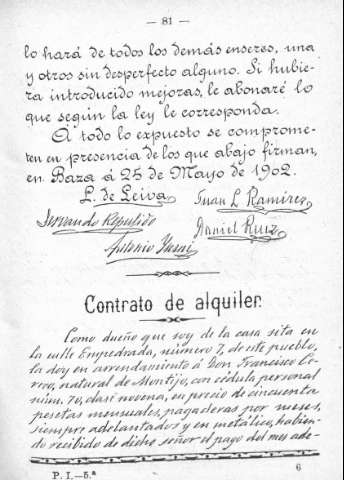 — 81 —
lo hará de todos los demás enseres, una
y otros sin desperfecto alguno. Si hubie-
ra introducido mejoras, le abonaré lo
que según la ley le corresponda.
A todo lo expuesto se comprome-
ten en presencia de los que abajo firman,
en Baza á 25 de Mayo de 1902.
L. de Leiva Juan L. Ramirez
Servando Repullido Daniel Ruiz
Antonio
Contrato de alquiler.
Como dueño que soy de la casa sita en
la calle Empedrada, número 7, de este pueblo,
la doy en arrendamiento á Don Francisco Co-
rvo, natural de Montijo, con cédula personal
núm. 70, clase novena, en precio de cincuenta
pesetas mensuales, pagaderas por meses,
siempre adelantados y en metálico, habien-
do recibido de dicho señor el pago del mes ade-
P. I.—5.ª 6